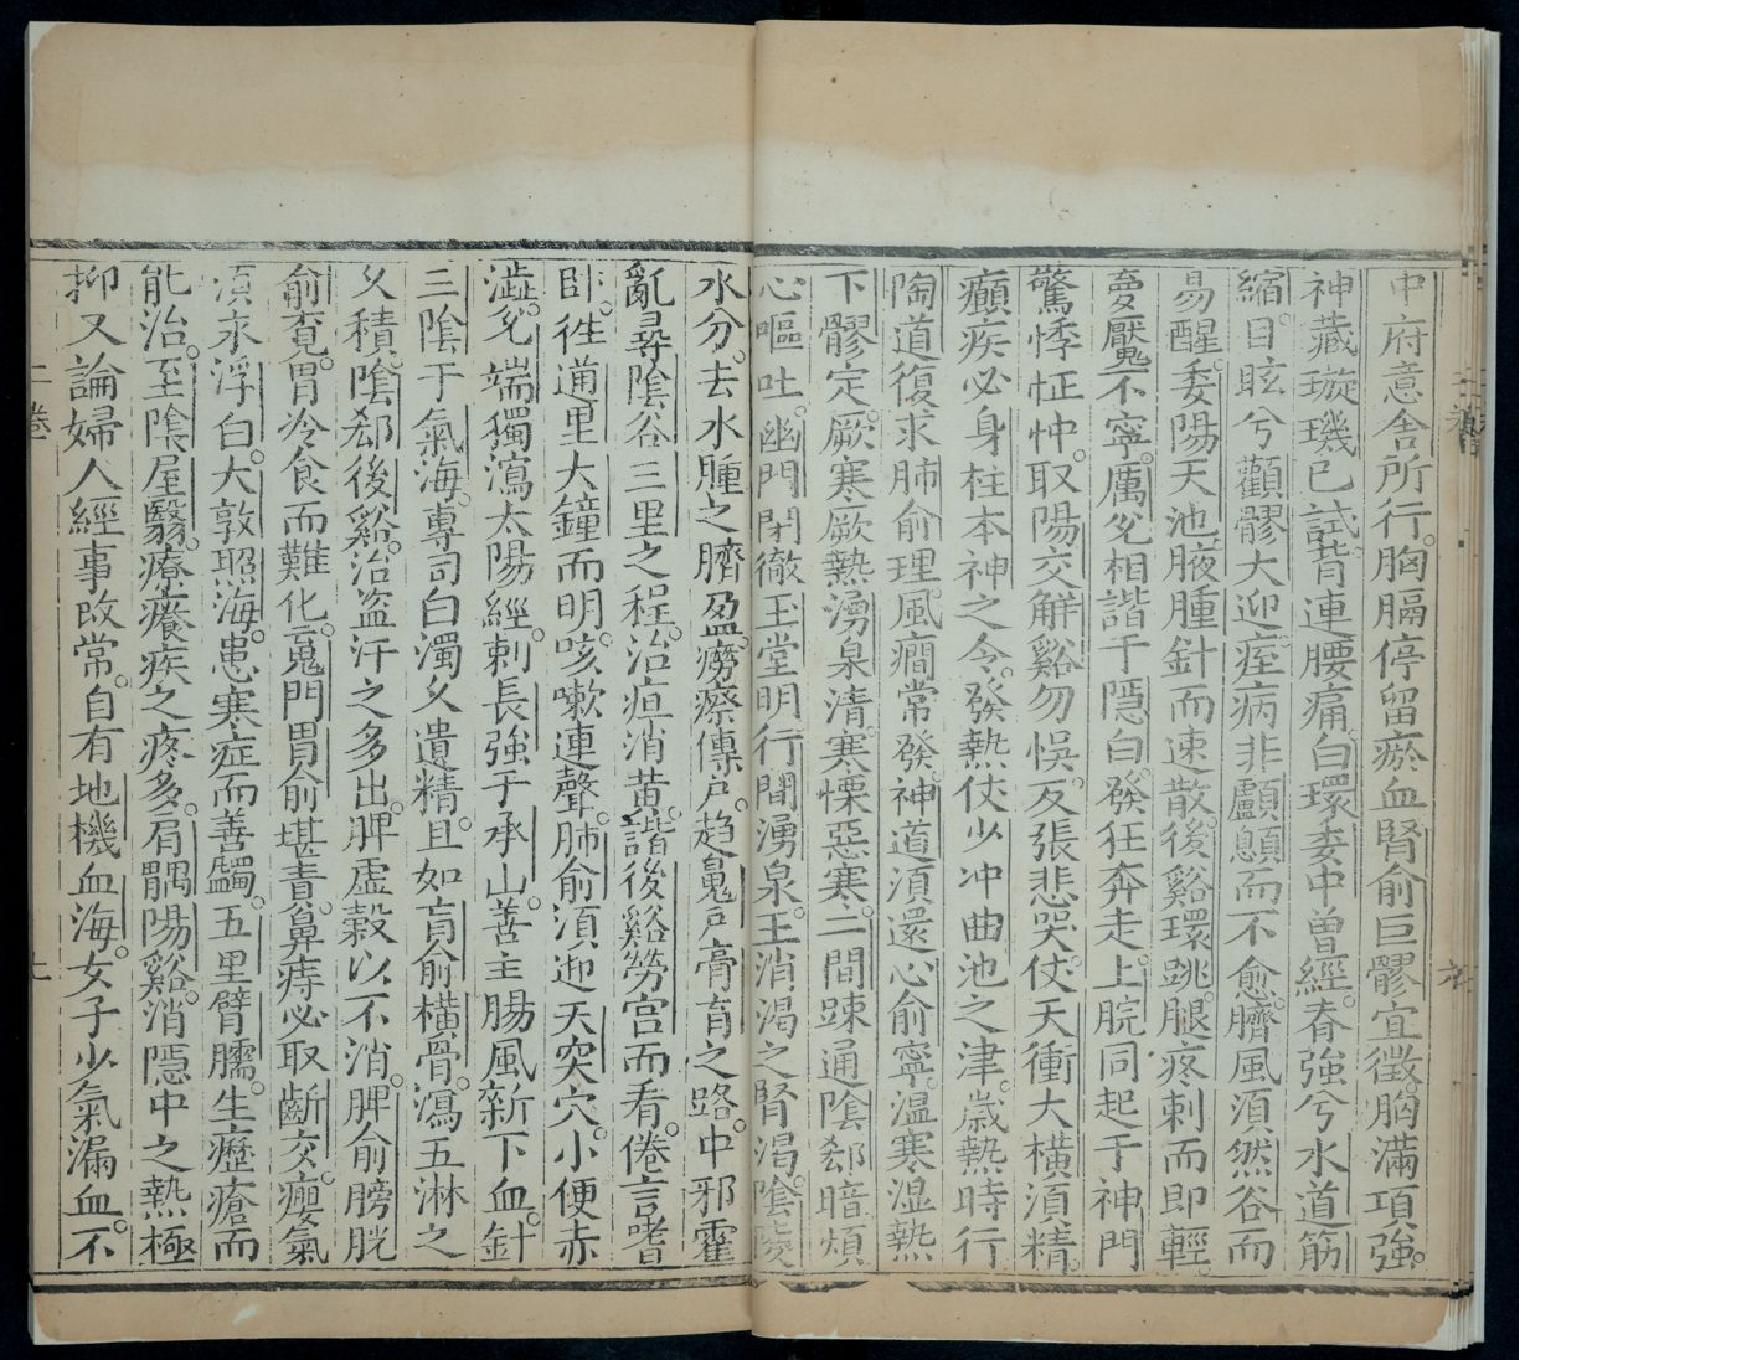 中府意舍所行胸膈停留瘀血腎俞巨髎宜徵胸滿項強
神藏璇璣已試背連腰痛白環委中曾經春強兮水道筋
縮目眩兮顴髎大迎痓病非顱顖而不愈臍風須然谷而
易醒委陽天池腋腫針而速散後谿環跳腿疼刺而即輕
夢魘不寧厲兊相諧于隱白發狂奔走上脘同起于神門
驚悸怔忡取陽交觧谿勿悮反張悲哭仗天衝大橫須精
癲疾必身柱本神之令發熱仗少冲曲池之津嵗熱時行
陶道復求肺俞理風癇常發神道須還心俞寧溫寒湿熱
下髎定厥寒厥熱湧泉清寒慄惡寒二間踈通陰郄暗煩
心嘔吐幽門閉徹玉堂明行間湧泉主消渴之腎渴陰陵
水分去水腫之臍盈癆瘵傳尸趋鬼尸膏肓之路中邪霍
亂尋陰谷三里之程治疸消黃諧後谿勞宮而看倦言嗜
臥徃通里大鐘而明咳嗽連聲肺俞須迎天突穴小便赤
澁兊端獨瀉太陽經刺長強于承山善主腸風新下血針
三陰于氣海專司白濁乆遺精且如肓俞橫骨瀉五淋之
乆積陰郄後谿治盗汗之多出脾虚穀以不消脾俞膀胱
俞覔胃冷食而難化䰟門胃俞堪責鼻痔必取齗交瘿氣
須求浮白大敦照海患寒疝而善蠲五里臂臑生癧瘡而
能治至陰屋翳療癢疾之疼多肩髃陽谿消隱中之熱極
抑又論婦人經事改常自有地機血海女子少氣漏血不
二卷